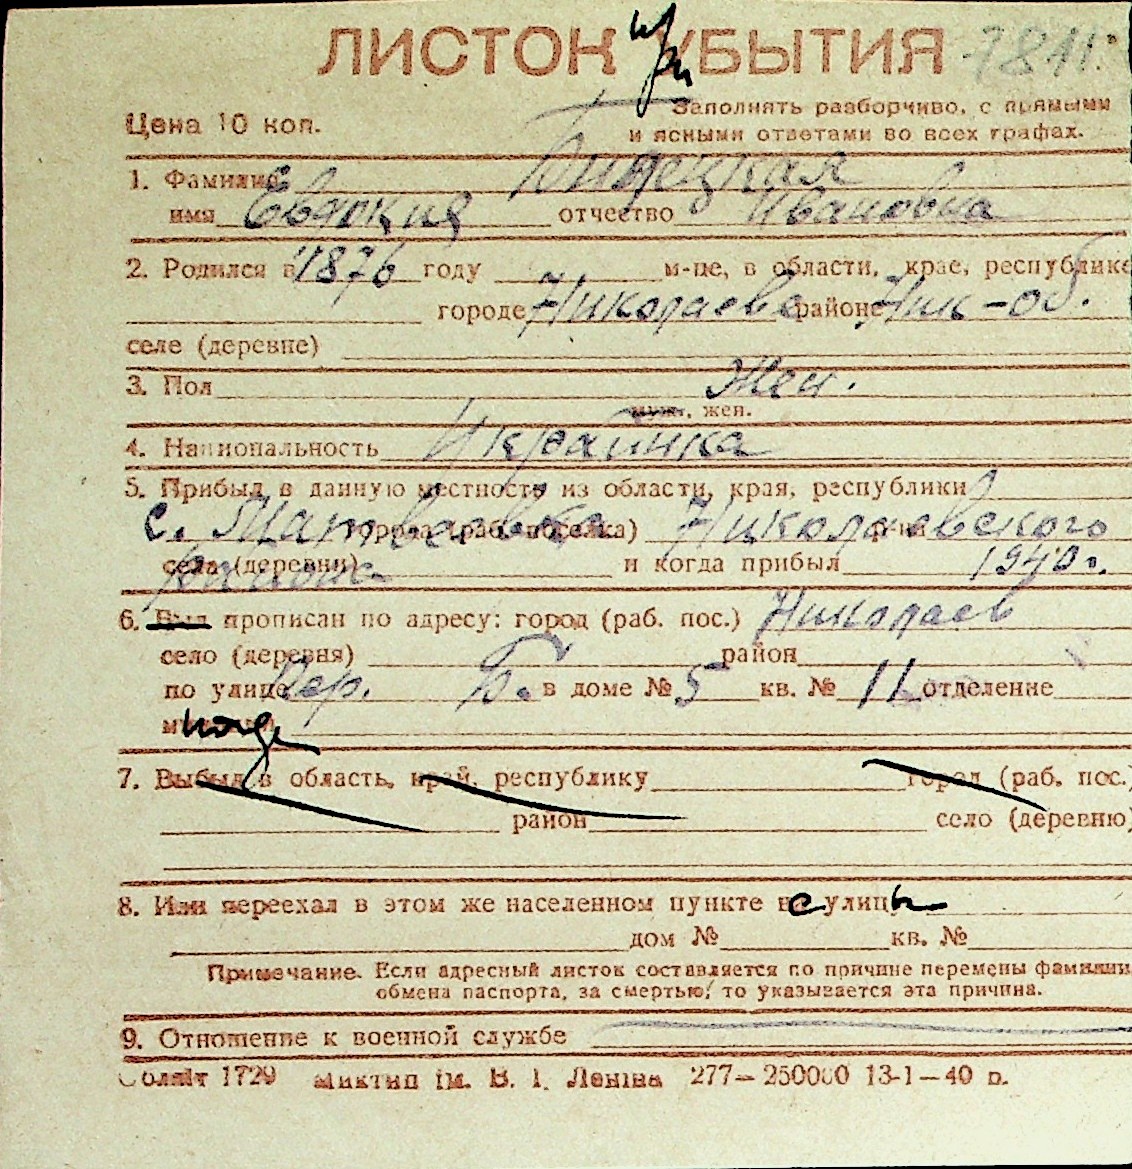 ЛИСТОК УБЫТИЯ 7811.
при
Цена 10 коп.
Заполнять разборчиво, с прямыми
и ясными ответами во всех графах.
1. Фамилия Бидецкая
имя Евдокия отчество Ивановна
2. Родился в 1876 году м-це, в области, крае, республике
городе Николаеве районе Ник-об.
селе (деревне)
3. Пол Жен.
муж., жен.
4. Национальность Украинка
5. Прибыл в данную местность из области, края, республики
с. Матвеевка города (раб. поселка) Николаевского р-на
села (деревни) района и когда прибыл 1940 г.
6. Был прописан по адресу: город (раб. пос.) Николаев
село (деревня) район
по улице Пер. Б. в доме № 5 кв. № 11 отделение
7. Выбыл в область, край, республику город (раб. пос.)
район село (деревню)
8. Или переехал в этом же населенном пункте с улицы
дом № кв. №
Примечание. Если адресный листок составляется по причине перемены фамилии,
обмена паспорта, за смертью, то указывается эта причина.
9. Отношение к военной службе
Облліт 1729 Миктип ім. В. І. Леніна 277—250000 13-1—40 р.